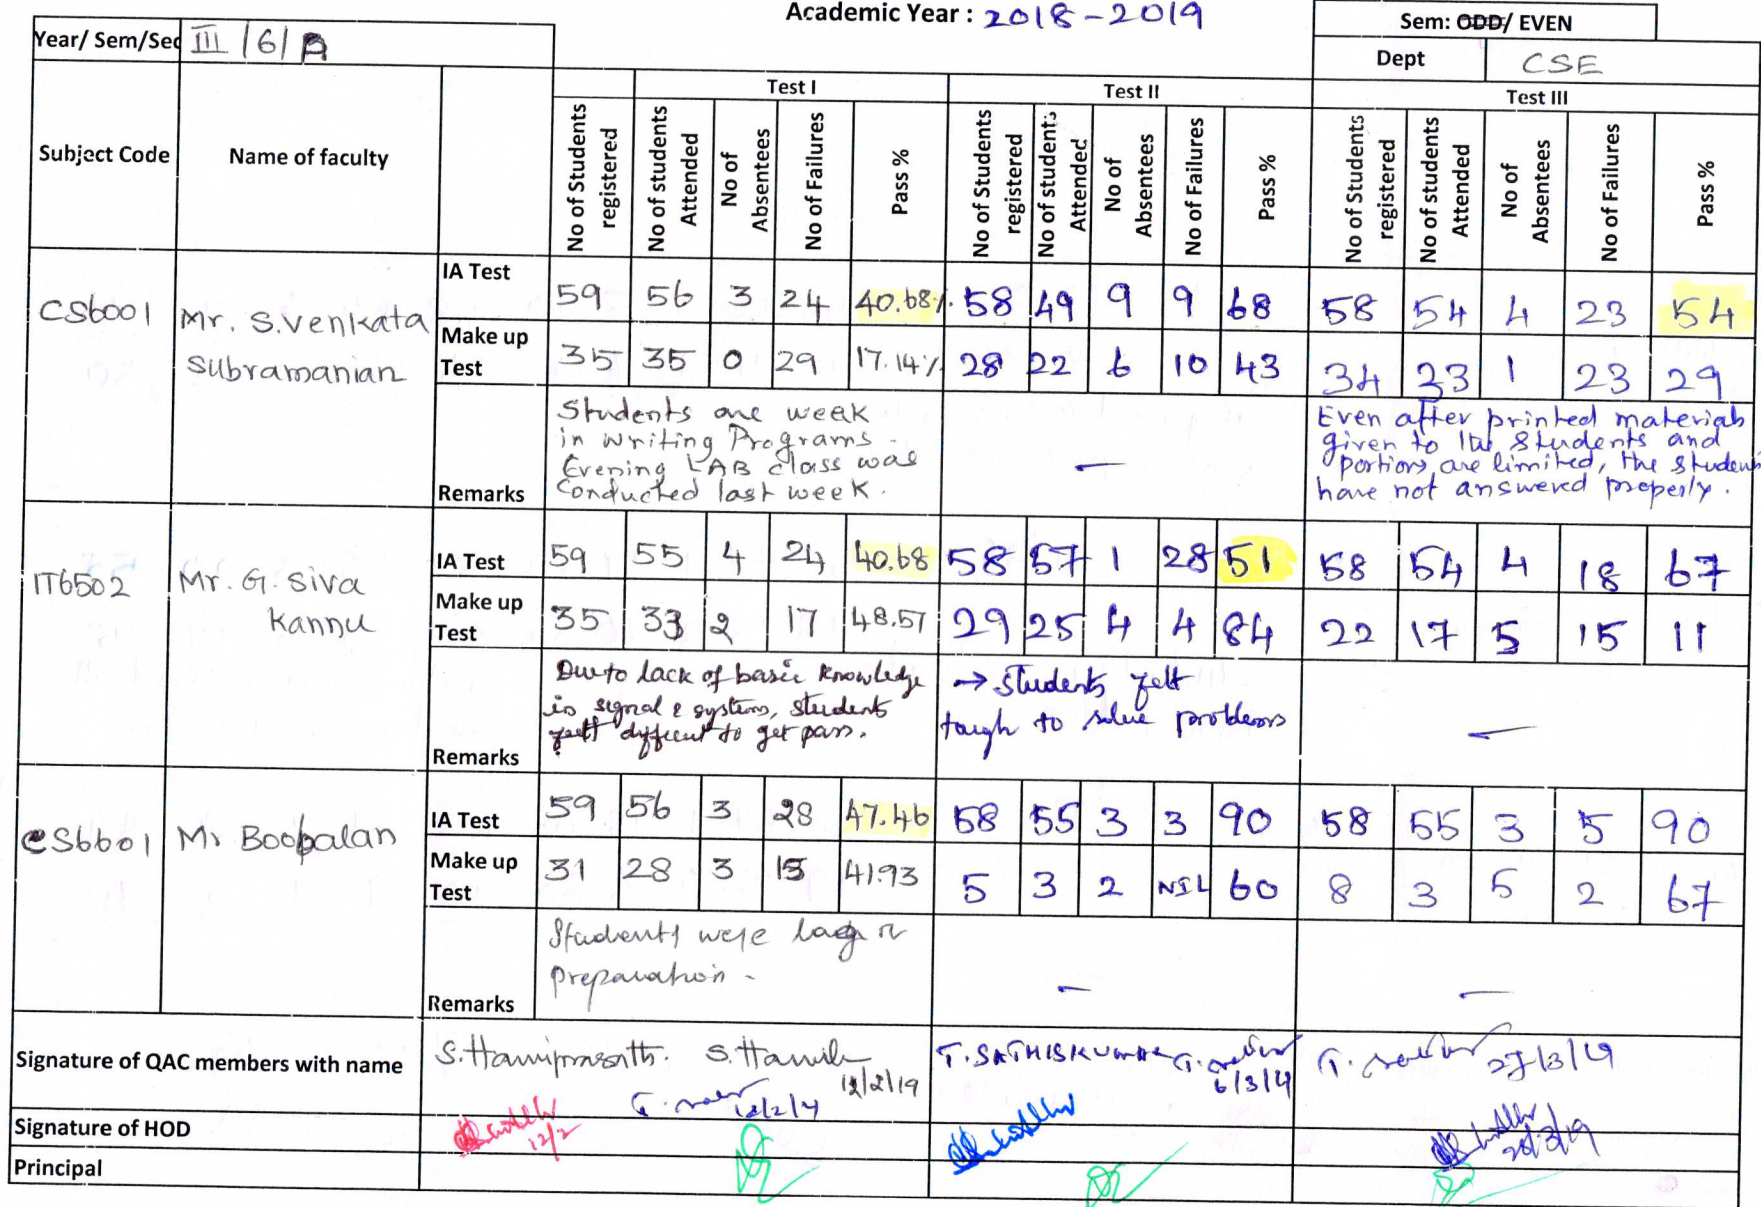 Academic Year : 2018-2019
Sem: ODD/ EVEN
Year/ Sem/Sec III/6/A
Dept CSE
Test I Test II Test III
Subject Code Name of faculty
No of Students registered No of students Attended No of Absentees No of Failures Pass % No of Students registered No of students Attended No of Absentees No of Failures Pass % No of Students registered No of students Attended No of Absentees No of Failures Pass %
CS6001 Mr. S.Venkata Subramanian
IA Test 59 56 3 24 40.68% 58 49 9 9 68 58 54 4 23 54
Make up Test 35 35 0 29 17.14% 28 22 6 10 43 34 33 1 23 29
Remarks
Students are week
in writing Programs -
Evening LAB class was
Conducted last week.
—
Even after printed materials
given to the students and
portions are limited, the students
have not answered properly.
IT6502 Mr. G. Siva Kannu
IA Test 59 55 4 24 40.68 58 57 1 28 51 58 54 4 18 67
Make up Test 35 33 2 17 48.57 29 25 4 4 84 22 17 5 15 11
Remarks
Due to lack of basic knowledge
in signal & systems, students
felt difficult to get pass.
→ Students felt
tough to solve problems
—
CS6601 Mr Boopalan
IA Test 59 56 3 28 47.46 58 55 3 3 90 58 55 3 5 90
Make up Test 31 28 3 15 41.93 5 3 2 NIL 60 8 3 5 2 67
Remarks
Students were lag in
preparation -
—
—
Signature of QAC members with name S.Hariprasath. 12/2/19 T.SATHISKUMAR 6/3/19 27/3/19
12/2/19
Signature of HOD 12/2
Principal